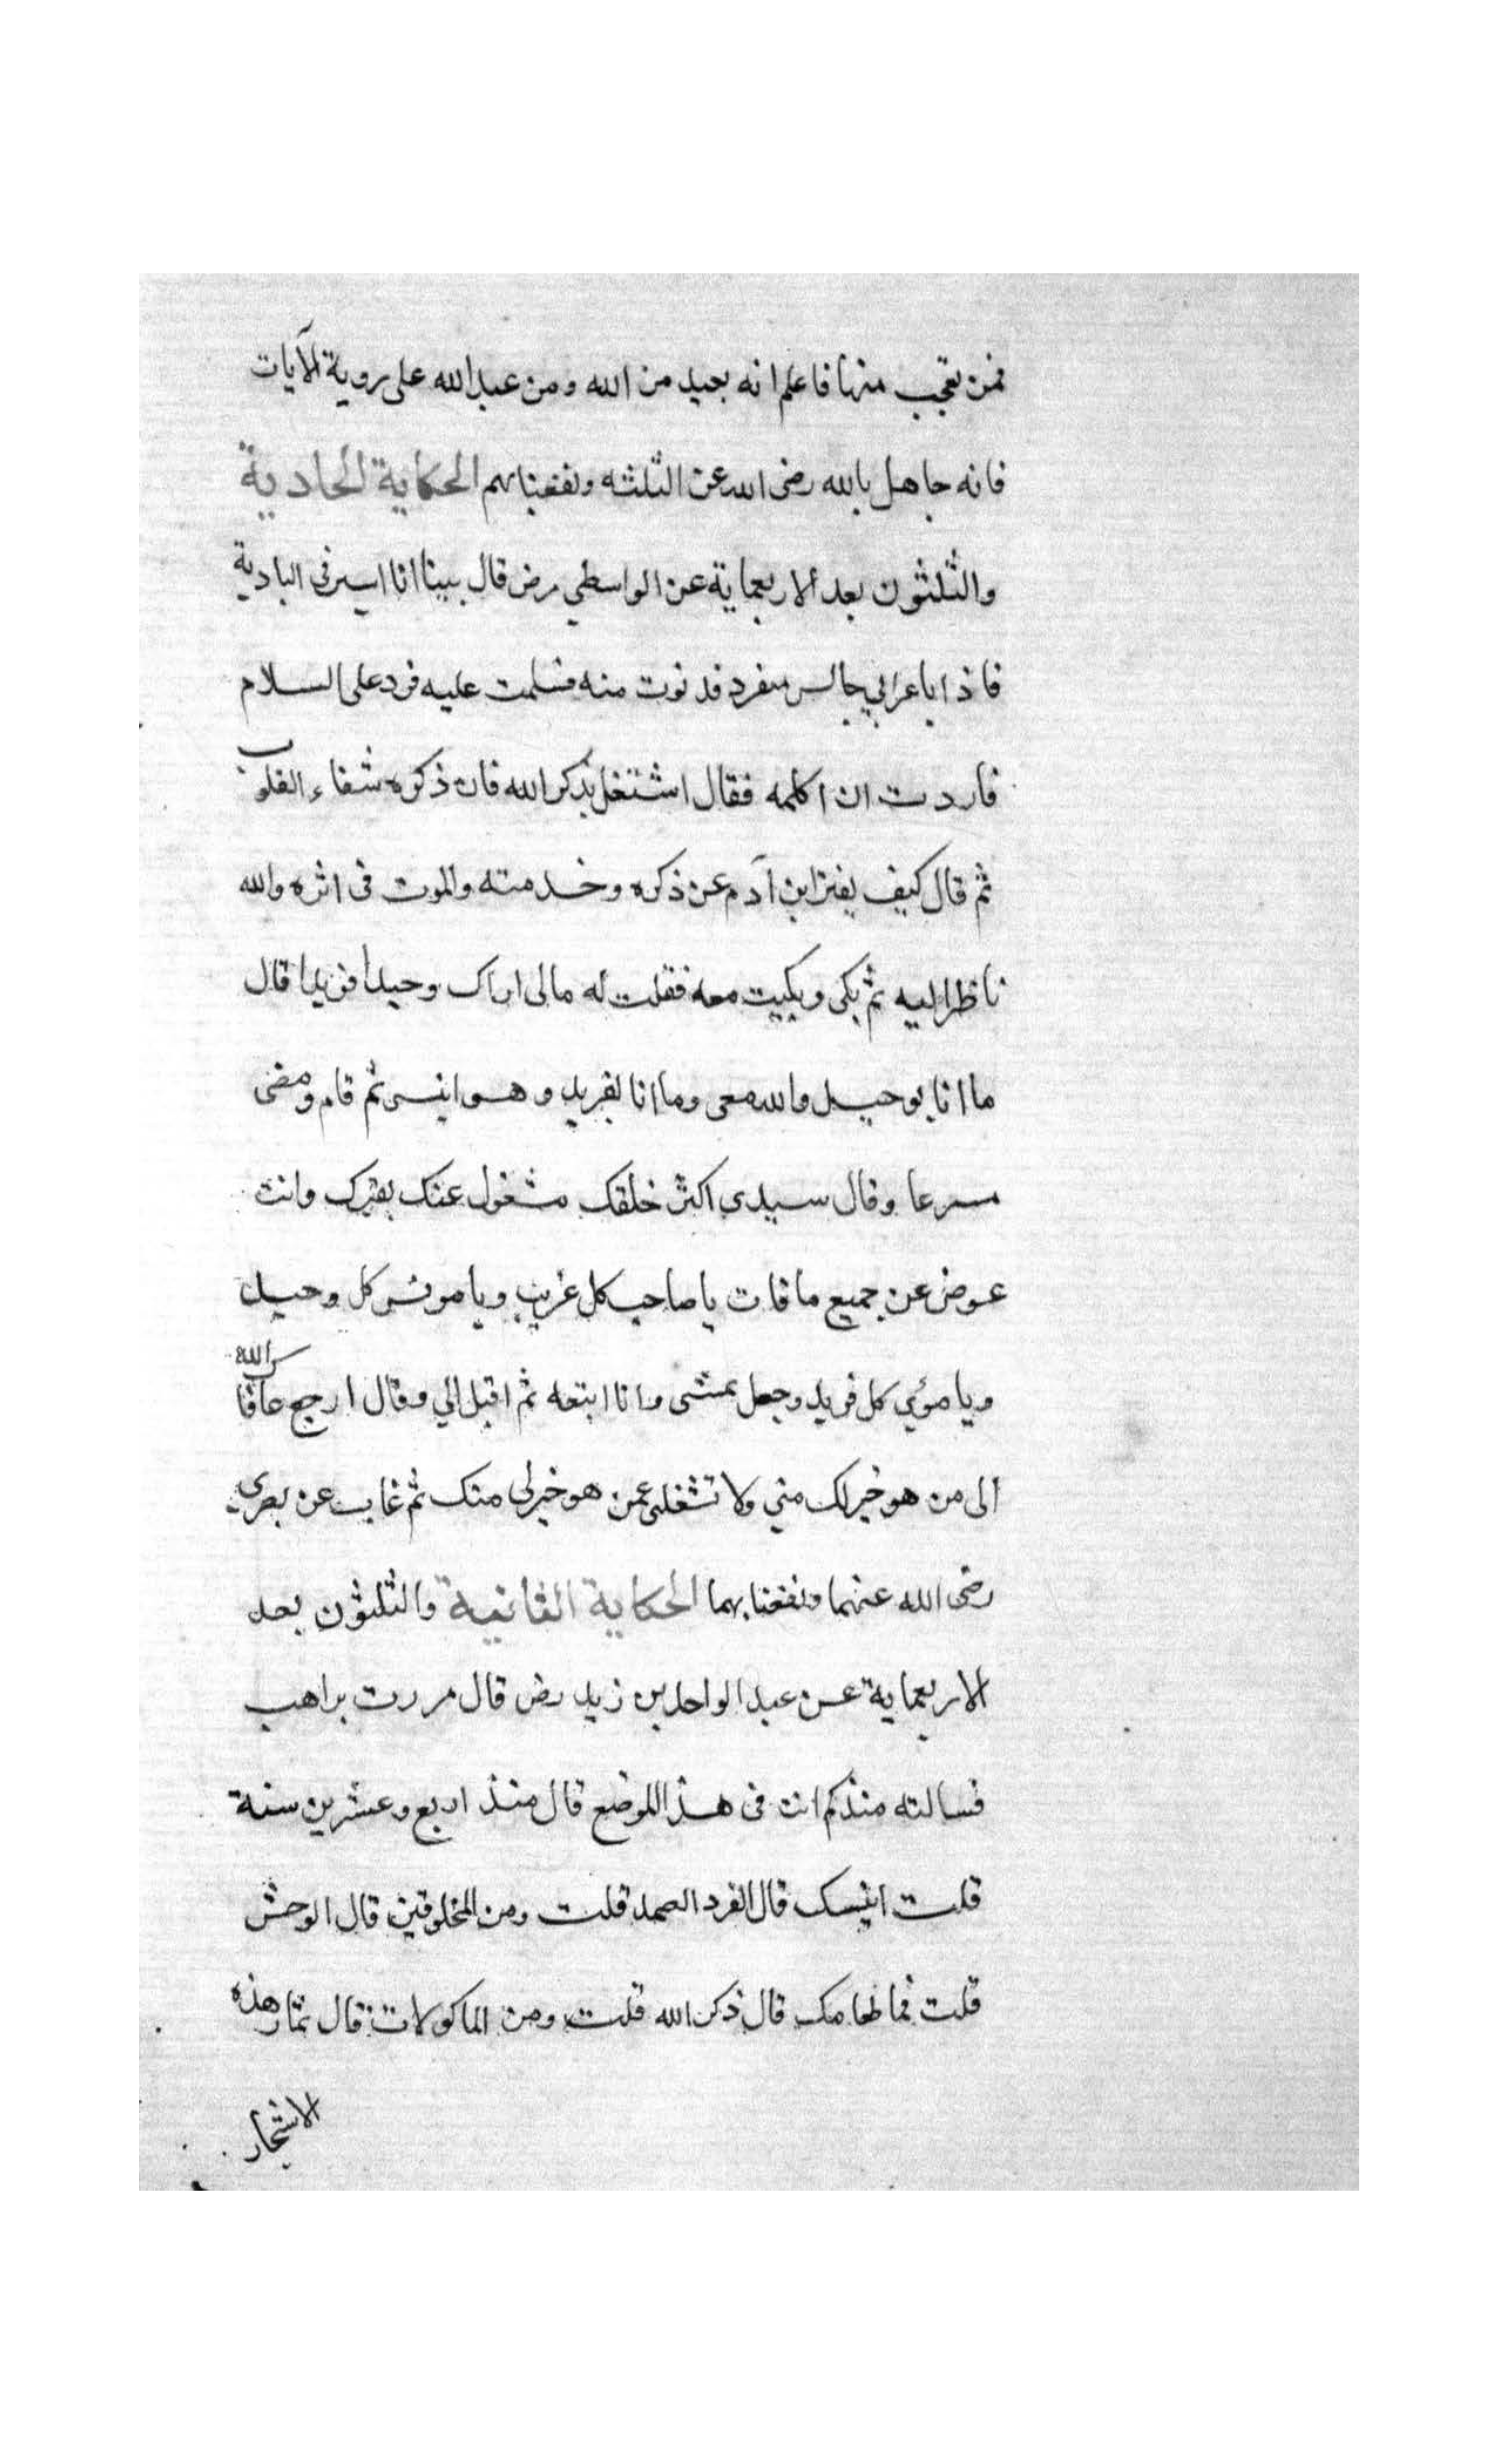 فمن تعجب منها فاعلم انه بعيد من الله ومن عبد الله على روية الآيات
فانه جاهل بالله رضى الله عن الثلثه ونفعنا بهم الحكاية الحادية
والثلثون بعد الاربعماية عن الواسطي رض قال بينا انا اسير في البادية
فاذا باعرابي جالس منفرد فدنوت منه فسلمت عليه فرد على السلام
فاردت ان اكلمه فقال اشتغل بذكر الله فان ذكره شفاء القلوب
ثم قال كيف يفتر ابن آدم عن ذكره وخدمته والموت فى اثره والله
ناظر اليه ثم بكى وبكيت معه فقلت له مالى اراك وحيدا فريدا قال
ما انا بوحيد والله معى وما انا بفريد وهو انيسى ثم قام ومضى
مسرعا وقال سيدى اكثر خلقك مشغول عنك بغيرك وانت
عوض عن جميع ما فات يا صاحب كل غريب ويا مونس كل وحيد
ويا مؤي كل فريد وجعل يمشى وانا اتبعه ثم اقبل الي وقال ارجع عافاك الله
الى من هو خير لك مني ولا تشغلنى عمن هو خير لى منك ثم غاب عن بصرى
رضى الله عنهما ونفعنا بهما الحكاية الثانية والثلثون بعد
الاربعماية عن عبد الواحد بن زيد رض قال مررت براهب
فسالته منذ كم انت فى هذا الموضع قال منذ اربع وعشرين سنة
قلت انيسك قال الفرد الصمد قلت ومن المخلوقين قال الوحش
قلت فما طعامك قال ذكر الله قلت ومن الماكولات قال ثمار هذه
الاشجار